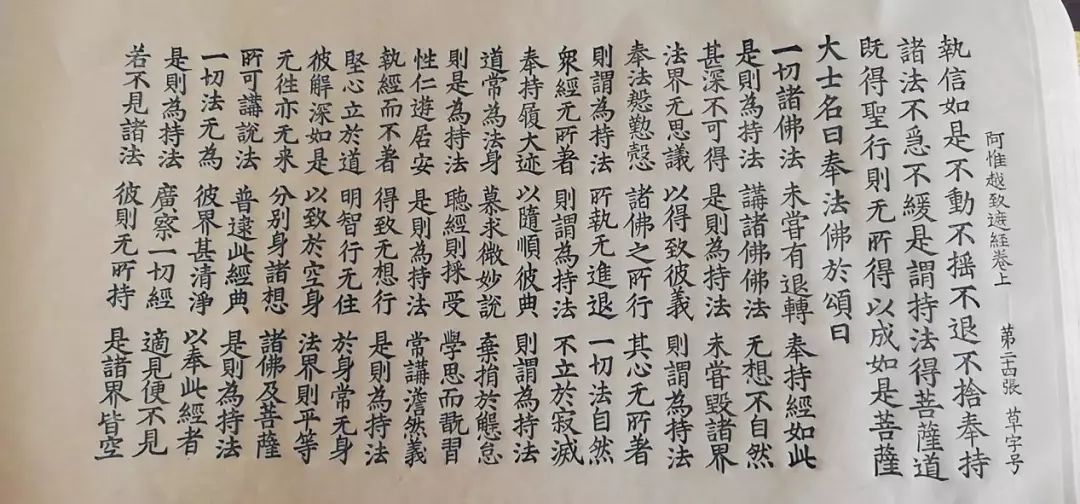 阿惟越致遮經卷上 第二十四張 草字号
執信如是不動不摇不退不捨奉持
諸法不急不緩是謂持法得菩薩道
既得聖行則无所得以成如是菩薩
大士名曰奉法佛於頌曰
一切諸佛法 未甞有退轉 奉持經如此
是則為持法 講諸佛佛法 无想不自然
甚深不可得 是則為持法 未甞毀諸界
法界无思議 以得致彼義 則謂為持法
奉法慇懃慤 諸佛之所行 其心无所著
則謂為持法 所執无進退 一切法自然
衆經无所著 則謂為持法 不立於寂滅
奉持履大迹 以隨順彼典 則謂為持法
道常為法身 慕求微妙說 棄捐於懈怠
則是為持法 聽經則採受 學思而翫習
性仁遊居安 是則為持法 常講澹然義
執經而不著 得致无想行 是則為持法
堅心立於道 明智行无住 於身常无身
彼解深如是 以致於空身 法界則平等
无往亦无来 分别身諸想 諸佛及菩薩
所可講說法 普遠此經典 是則為持法
一切法无為 彼界甚清淨 以奉此經者
是則為持法 廣察一切經 適見便不見
若不見諸法 彼則无所持 是諸界皆空